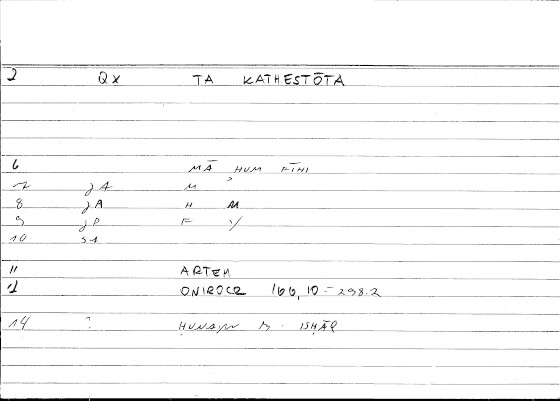 2 QX TA KATHESTŌTA
6 MĀ HUM FĪHI
7 JA M
8 JA H M
9 JP F Y
10 S1
11 ARTEM
12 ONIROCR 166,10 = 298.2
14 ? ḤUNAYN B. ISḤĀQ